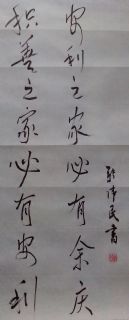 积善之家必有安利
安利之家必有余庆
民書